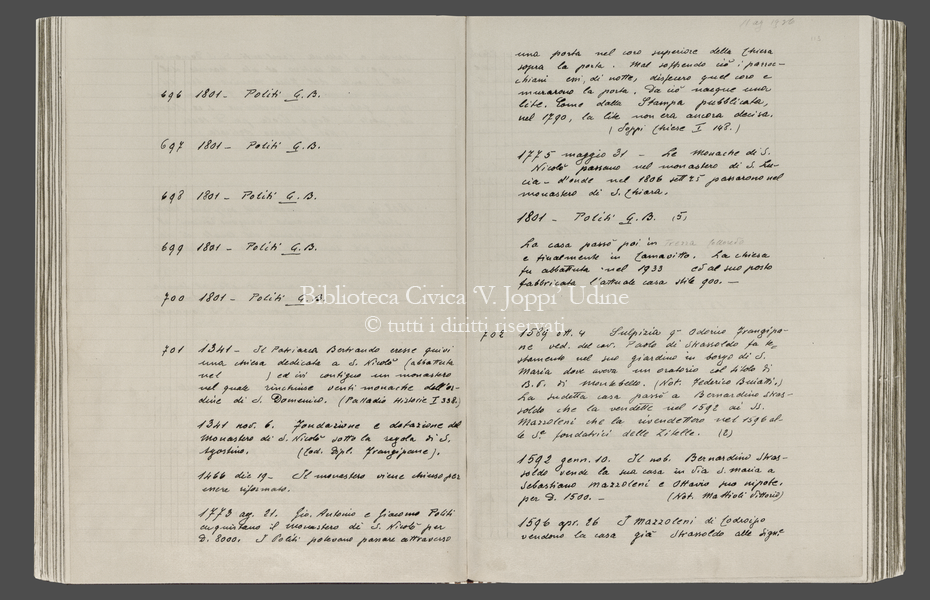 696 1801 - Politi G. B.
697 1801 - Politi G. B.
698 1801 - Politi G. B.
699 1801 - Politi G. B.
700 1801 - Politi G. B.
701 1341 - Il Patriarca Bertrando eresse quivi
una chiesa dedicata a S. Nicolò (abbattuta
nel ) ed ivi contiguo un monastero
nel quale rinchiuse venti monache dell'or-
dine di S. Domenico. (Palladio Historie I 338.)
1341 nov. 6. Fondazione e dotazione del
Monastero di S. Nicolò sotto la regola di S.
Agostino. (Cod. Dipl. Frangipane).
1466 dic 19 - Il monastero viene chiuso per
essere riformato.
1773 ag. 21. Gio. Antonio e Giacomo Politi
acquistano il monastero di S. Nicolò per
D. 8000. I Politi potevano passare attraverso
una porta nel coro superiore della Chiesa
sopra la porta. Mal soffrendo ciò i parroc-
chiani essi, di notte, disfecero quel coro e
murarono la porta. Da ciò nacque una
lite. Come dalla Stampa pubblicata,
nel 1790, la lite non era ancora decisa.
(Joppi Chiese I 148.)
1775 maggio 31 - Le Monache di S.
Nicolò passano nel monastero di S. Lu-
cia - d'onde nel 1806 sett 25 passarono nel
monastero di S. Chiara.
1801 - Politi G. B. (5)
La casa passò poi in
e finalmente in Camavitto. La chiesa
fu abbattuta nel 1933 ed al suo posto
fabbricata l'attuale casa stile 900. -
702 1589 ott. 4 Sulpizia q. Odorico Frangipa-
ne ved. del cav. Paolo di Strassoldo fa te-
stamento nel suo giardino in borgo di S.
Maria dove aveva un oratorio col titolo di
B. V. di Monteballo. (Not. Federico Bruatti.)
La sudetta casa passò a Bernardino Stras-
soldo che la vendette nel 1592 ai SS.
Mazzoleni che la rivendettero nel 1596 al-
le Se fondatrici delle Zitelle. (2)
1592 genn. 10. Il nob. Bernardino Stras-
soldo vende la sua casa in via S. Maria a
Sebastiano Mazzoleni e Ottavio suo nipote,
per D. 1500. - (Not. Mattioli Vittorio)
1596 apr. 26 I Mazzoleni di Codroipo
vendono la casa già Strassoldo alle Sign.e
Biblioteca Civica 'V. Joppi' Udine
© tutti i diritti riservati